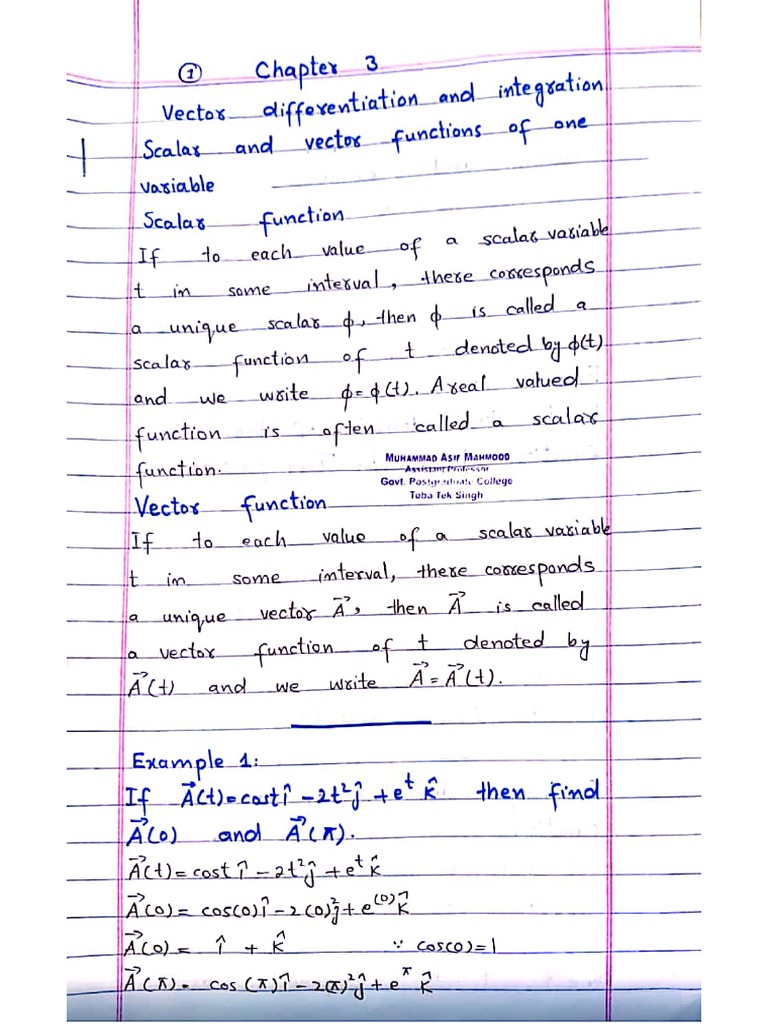 ① Chapter 3
Vector differentiation and integration
Scalar and vector functions of one
variable
Scalar function
If to each value of a scalar variable
t in some interval, there corresponds
a unique scalar ϕ, then ϕ is called a
scalar function of t denoted by ϕ(t)
and we write ϕ=ϕ(t). A real valued
function is often called a scalar
function.
MUHAMMAD ASIF MAHMOOD
Assistant Professor
Govt. Postgraduate College
Toba Tek Singh
Vector function
If to each value of a scalar variable
t in some interval, there corresponds
a unique vector A⃗, then A⃗ is called
a vector function of t denoted by
A⃗(t) and we write A⃗=A⃗(t).
Example 1:
If A⃗(t)=cost î -2t²ĵ +eᵗ k̂ then find
A⃗(0) and A⃗(π).
A⃗(t)=cost î -2t²ĵ +eᵗ k̂
A⃗(0)= cos(0)î -2(0)²ĵ + e⁽⁰⁾k̂
A⃗(0)= î + k̂ ∵ cos(0)=1
A⃗(π)= cos(π)î -2(π)²ĵ + e^π k̂